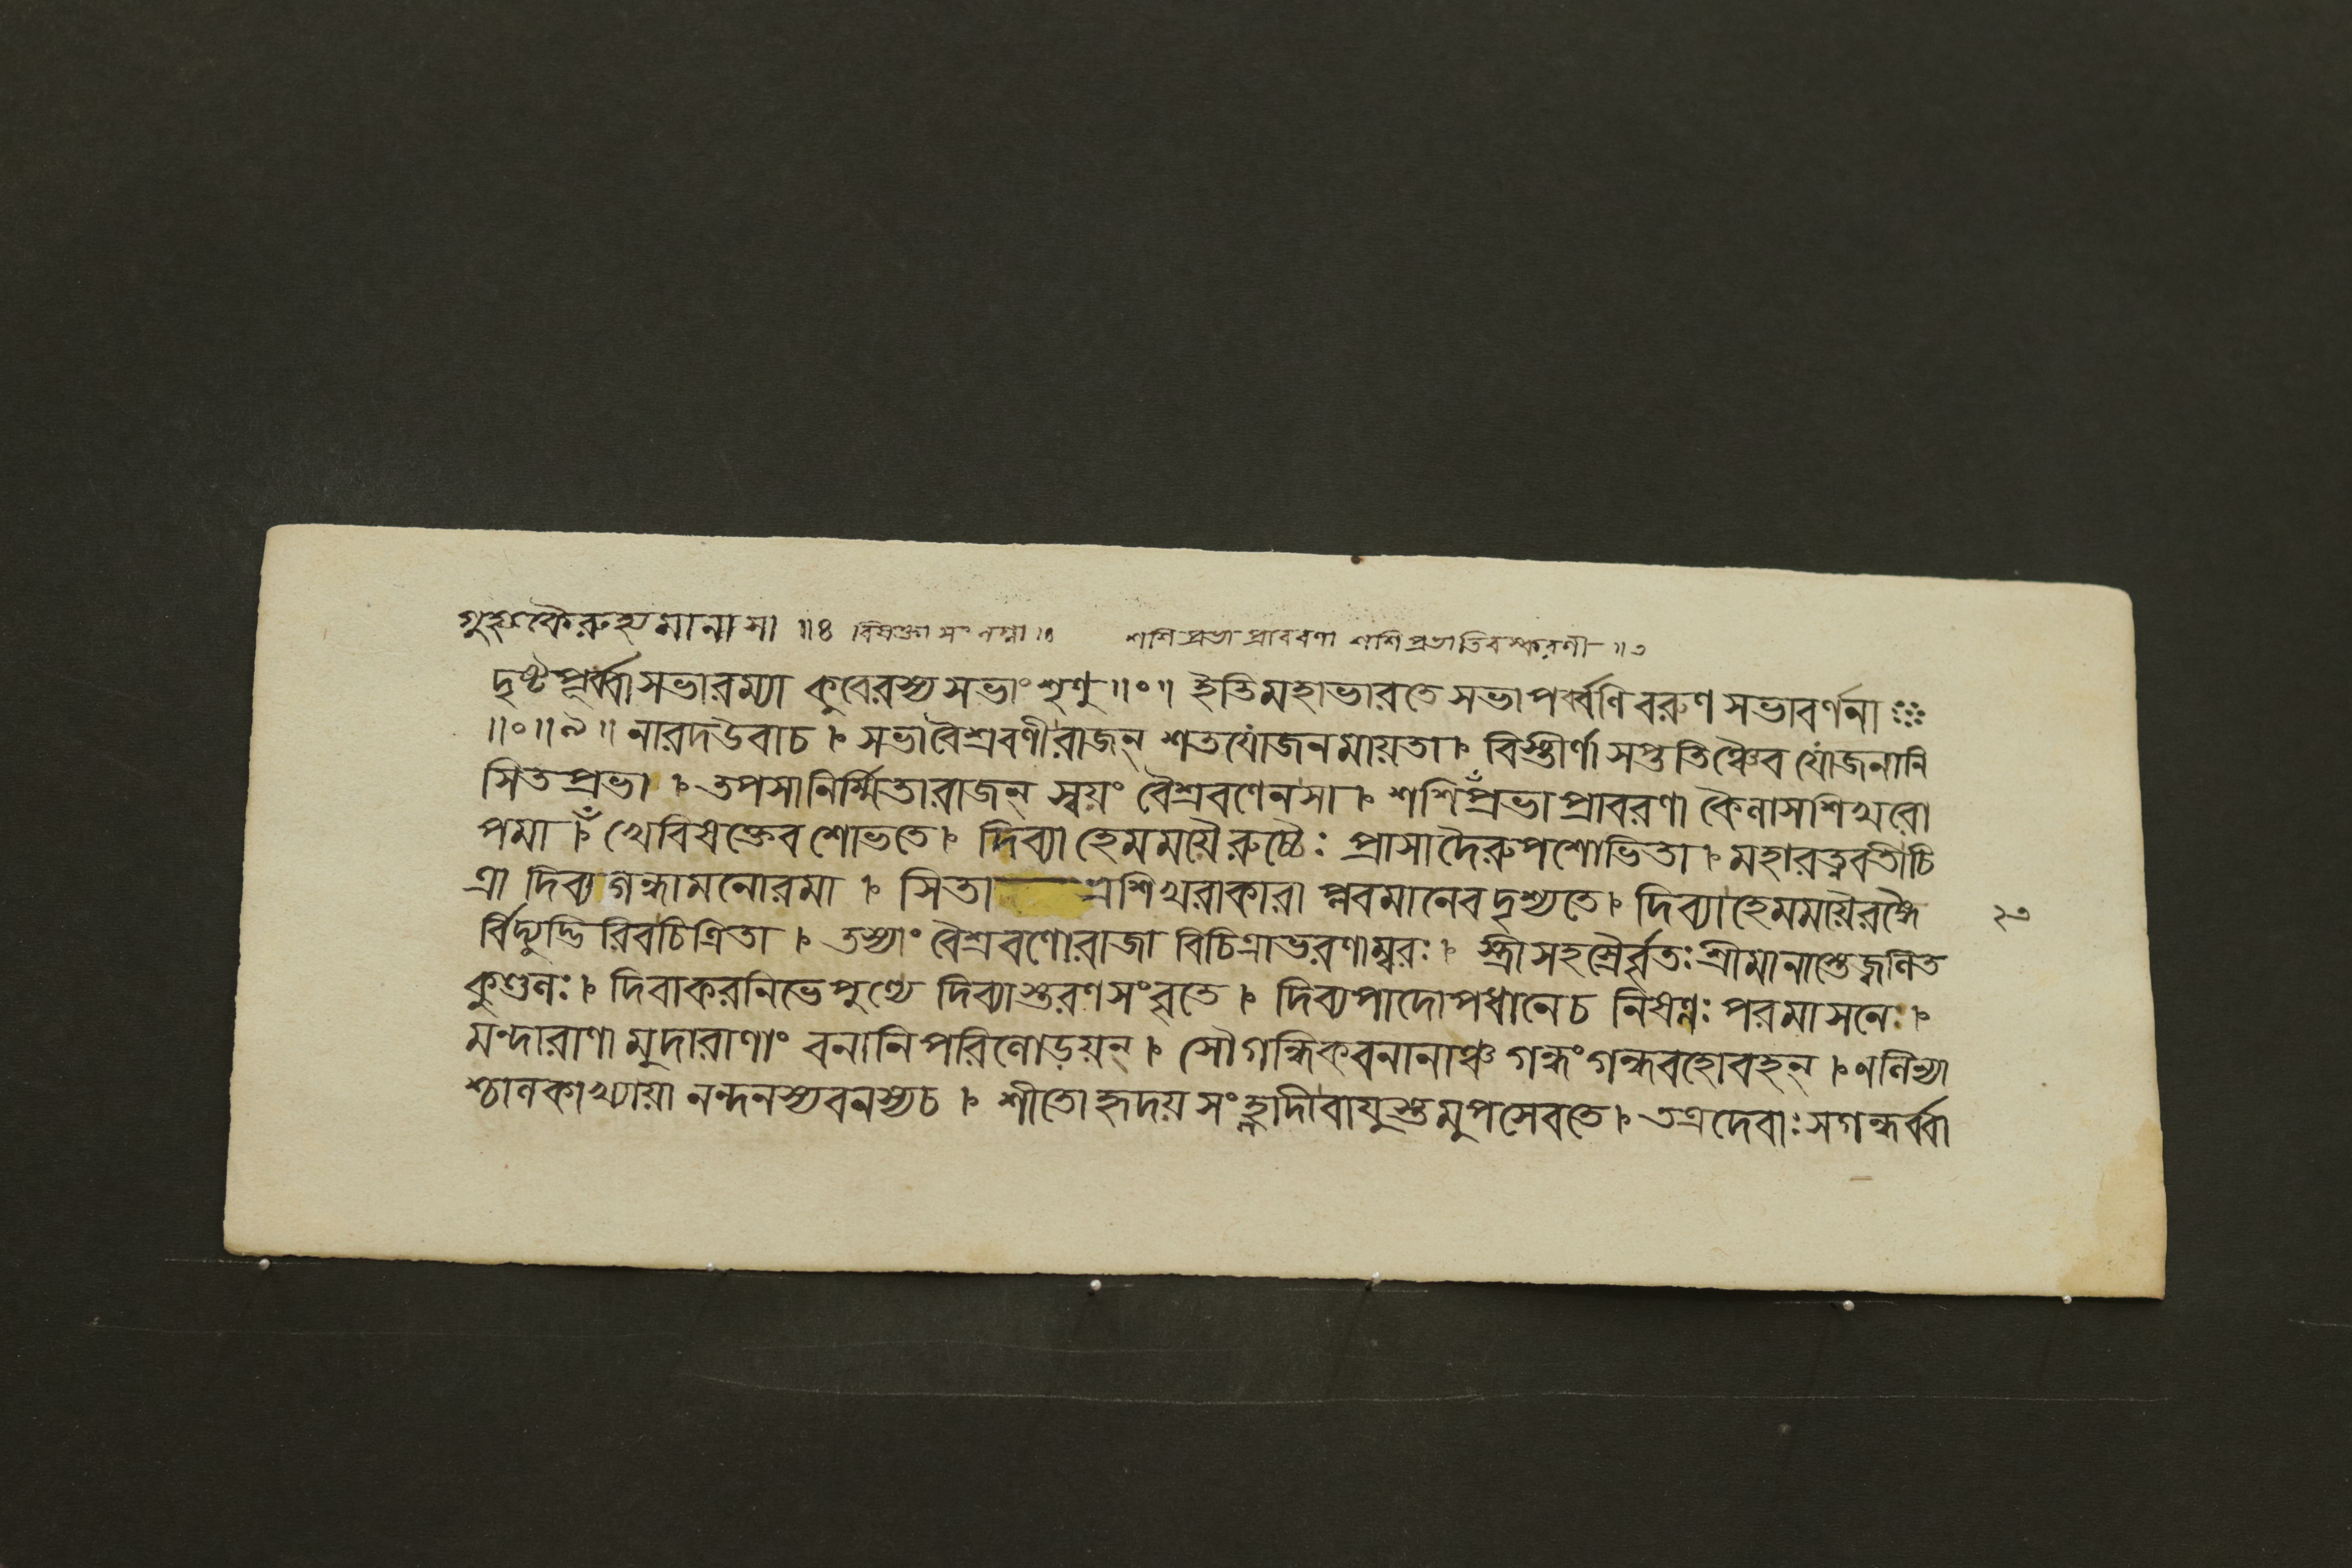 গুহ্যকৈরুহ্যমানা সা ॥৪ বিষক্তা সংলগ্না ॥৪ শশিপ্রভাপ্রাবরণা শশিপ্রভাতিরস্করণী ॥৩
দৃষ্টপূর্ব্বাসভারম্যা কুবেরস্য সভাং শৃণু ॥০॥ ইতিমহাভারতে সভাপর্ব্বণি বরুণ সভাবর্ণনা
॥০॥৯॥ নারদউবাচ । সভাবৈশ্রবণীরাজন্ শতযোজনমায়তা । বিস্তীর্ণা সপ্ততিঞ্চৈব যোজনানি
সিতপ্রভা । তপসানির্ম্মিতারাজন্ স্বয়ং বৈশ্রবণেনসা । শশিপ্রভাপ্রাবরণা কৈলাসশিখরো
পমা । খেবিষক্তেব শোভতে । দিব্যা হেমময়ৈরুচ্চৈঃ প্রাসাদৈরুপশোভিতা । মহারত্নবতীচি
ত্রা দিব্যগন্ধামনোরমা । সিতা ভ্রশিখরাকারা প্লবমানেবদৃশ্যতে । দিব্যাহেমময়ৈরঙ্গৈ
২৩
র্বিদ্যুদ্ভিরিবচিত্রিতা । তস্যাং বৈশ্রবণোরাজা বিচিত্রাভরণাম্বরঃ । স্ত্রীসহস্রৈর্বৃতঃ শ্রীমানাস্তেজ্বলিত
কুণ্ডলঃ । দিবাকরনিভেপুণ্যে দিব্যাস্তরণসংবৃতে । দিব্যপাদোপধানেচ নিষণ্ণঃ পরমাসনেঃ ।
মন্দারাণা মুদারাণাং বনানিপরিলোড়য়ন্ । সৌগন্ধিকবনানাঞ্চ গন্ধংগন্ধবহোবহন্ । ণলিন্যা
শ্চালকাখ্যায়া নন্দনস্যবনস্যচ । শীতোহৃদয়সংহ্লাদীবায়ুস্তমুপসেবতে । তত্রদেবাঃসগন্ধর্ব্বা